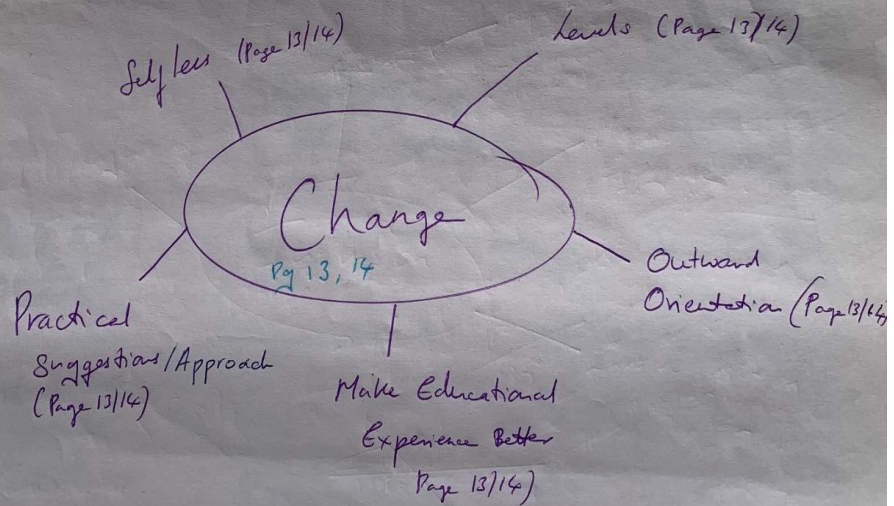 Selfless (Page 13/14)
Levels (Page 13/14)
Change
Pg 13, 14
Outward
Orientation (Page 13/14)
Practical
Suggestions/Approach
(Page 13/14)
Make Educational
Experience Better
Page 13/14)